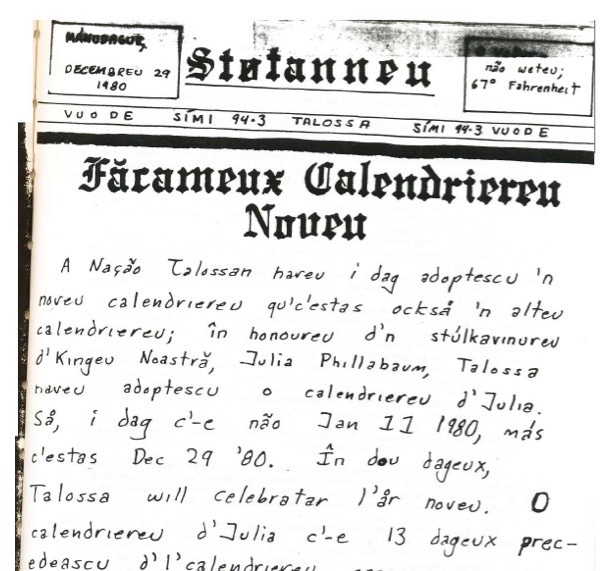 MÁNUDAGUÇ
DECEMBREU 29
1980
Støtanneu
não weteu;
67° Fahrenheit
VUODE SÍMI 94.3 TALOSSA SÍMI 94.3 VUODE
Făcameux Calendriereu
Noveu
A Nação Talossan haveu i dag adoptescu 'n
noveu calendriereu qu'c'estas också 'n alteu
calendriereu; în honoureu d'n stúlkavinureu
d'Kingeu Noastră, Julia Phillabaum, Talossa
haveu adoptescu o calendriereu d'Julia.
Så, i dag c'-e não Jan 11 1980, más
c'estas Dec 29 '80. În dou dageux,
Talossa will celebratar l'år noveu. O
calendriereu d'Julia c'-e 13 dageux prec-
edeascu d'l'calendriereu